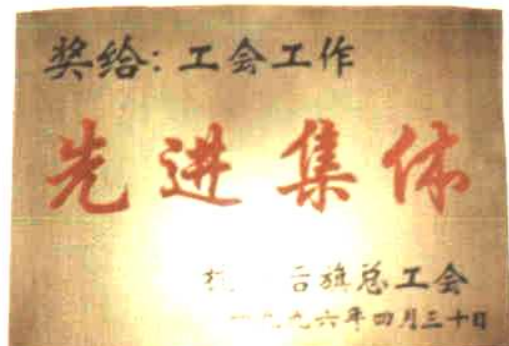 奖给：工会工作
先进集体
杭 后旗总工会
一九九六年四月三十日